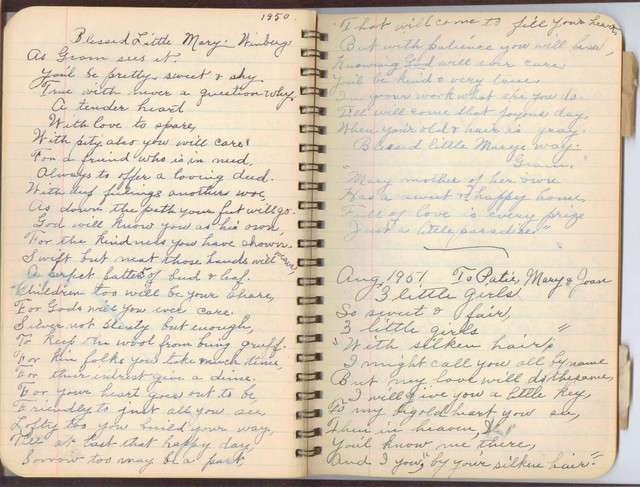 1950.
Blessed Little Mary. Winberg
As Gram sees it.
You'll be pretty, sweet & shy.
True with never a question why.
A tender heart
With love to spare,
With pity also you will care
For a friend who is in need,
Always to offer a loving deed.
With feelings anothers woe,
As down the path your feet will go.
God will know you as his own,
For the kindness you have shown.
Swift but neat those hands will weave,
A perfect pattern of bud & leaf.
Children too will be your share,
For Gods will you ever care.
Silver not plenty but enough,
To keep the wood from being gruff.
For kin folks you take much time,
For their interest give a dime.
For your heart goes out to be,
Friendly to just all you see.
Lofty too you build your way,
Till at last that happy day,
Sorrow too may be a part
That will come to fill your heart,
But with patience you will bear,
Knowing God will ever care.
You'll be kind & very true,
In your work what ere you do.
Till will come that joyous day,
When your old & hair is gray.
Blessed little Mary's way.
Gram.
Mary mother of her own
Has a sweet & happy home,
Full of love is every prize
Just a little paradise"
Aug, 1951 To Patie, Mary & Joan
3 little girls
So sweet & fair,
3 little girls "
"With silken hair,
I might call you all by name
But my love will do the same,
I will give you a little key,
To my gold heart you see,
Then in heaven,
You'll know me there,
And I you, by your silken hair."